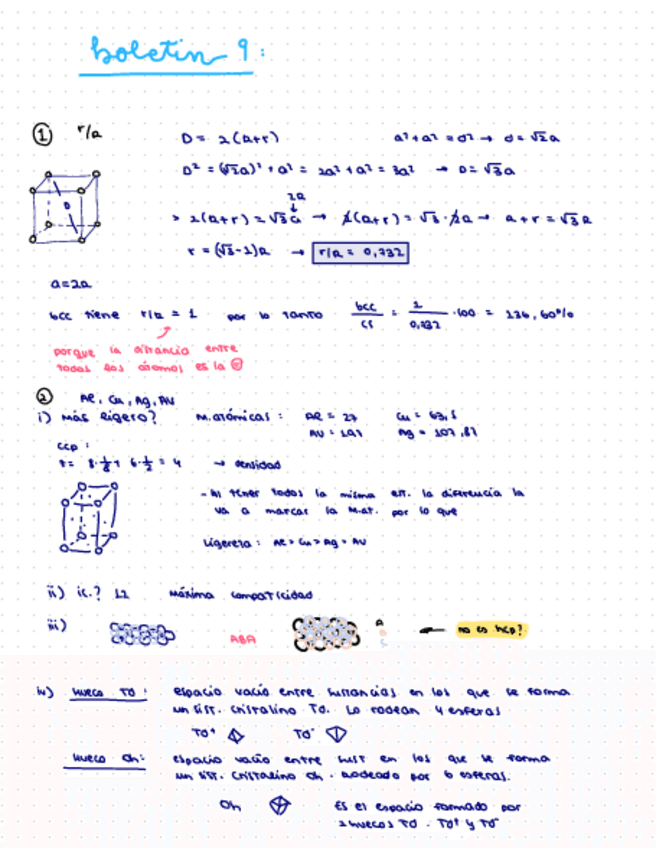 boletin 9:
① r/a
D = 2(a+r) a²+a² = d² → d = √2a
D² = (√2a)² + a² = 2a² + a² = 3a² → D = √3a
2a
> 2(a+r) = √3a → 2(a+r) = √3·2a → a+r = √3a
r = (√3-1)a → r/a = 0,732
a=2a
bcc tiene r/a = 1 por lo tanto bcc/cs = 1/0,732 · 100 = 136,60%
porque la distancia entre
todos los átomos es la =
② Al, Cu, Ag, Au
i) más ligero? M.atómicas: Al = 27 Cu = 63,5
Au = 197 Ag = 107,87
ccp:
z = 8·1/8 + 6·1/2 = 4 → densidad
- Al tener todos la misma est. la diferencia la
va a marcar la M.at. por lo que
Ligereza: Al > Cu > Ag > Au
ii) ic.? 12 máxima compaticidad
iii) ABA A
C
← no es hcp?
iv) hueco Td: espacio vacío entre sustancias en los que se forma
un sist. cristalino Td. Lo rodean 4 esferas
Td⁺ Td⁻
hueco Oh: espacio vacío entre sust en los que se forma
un sist. cristalino Oh. Rodeado por 6 esferas.
Oh Es el espacio formado por
2 huecos Td. Td⁺ y Td⁻